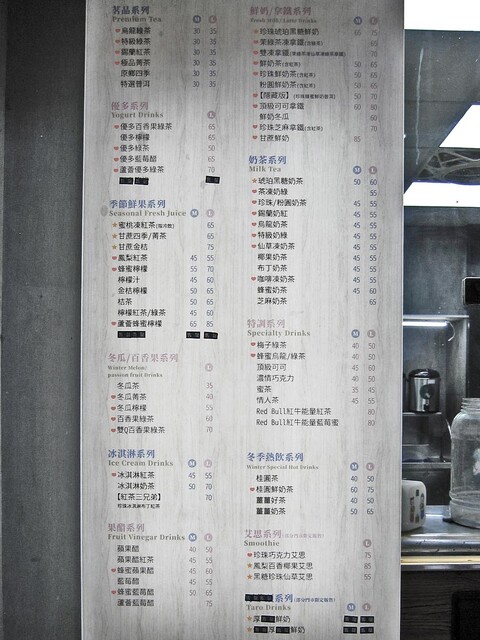 茗品系列
Premium Tea M L
烏龍綠茶 30 35
特級綠茶 30 35
錫蘭紅茶 30 35
極品菁茶 30 35
原鄉四季 30 35
特選普洱 30 35
優多系列
Yogurt Drinks L
優多百香果綠茶 65
優多檸檬 65
優多綠茶 50
優多藍莓醋 65
蘆薈優多綠茶 70
季節鮮果系列
Seasonal Fresh Juice M L
蜜桃凍紅茶 65
甘蔗四季/菁茶 65
甘蔗金桔 75
鳳梨紅茶 45 55
蜂蜜檸檬 55 70
檸檬汁 45 60
金桔檸檬 50 65
桔茶 50 65
檸檬紅茶/綠茶 45 60
蘆薈蜂蜜檸檬 65 85
冬瓜/百香果系列
Winter Melon/
passion fruit Drinks L
冬瓜茶 35
冬瓜菁茶 40
冬瓜檸檬 55
百香果綠茶 60
雙Q百香果綠茶 70
冰淇淋系列
Ice Cream Drinks M L
冰淇淋紅茶 45 55
冰淇淋奶茶 50 70
【紅茶三兄弟】 70
果醋系列
Fruit Vinegar Drinks M L
蘋果醋 40 50
蘋果醋紅茶 45 55
蜂蜜蘋果醋 45 60
藍莓醋 45 55
蜂蜜藍莓醋 50 65
蘆薈藍莓醋 75
鮮奶/拿鐵系列
Fresh Milk / Latte Drinks M L
珍珠琥珀黑糖鮮奶 65 75
茶綠茶凍拿鐵
雙凍拿鐵
鮮奶茶 50 65
珍珠鮮奶茶 50 65
粉圓鮮奶茶 50 65
【隱藏版】 50 70
頂級可可拿鐵 60 80
鮮奶冬瓜 60
珍珠芝麻拿鐵 70
甘蔗鮮奶 85
奶茶系列
Milk Tea M L
琥珀黑糖奶茶 50 60
茶凍奶綠 55
珍珠/粉圓奶茶 45 55
錫蘭奶紅 45 55
烏龍奶茶 45 55
特級奶綠 45 55
仙草凍奶茶 45 55
椰果奶茶 45 55
布丁奶茶 45 55
咖啡凍奶茶 45 55
蜂蜜奶茶 45 60
芝麻奶茶 65
特調系列
Specialty Drinks M L
梅子綠茶 40 50
蜂蜜烏龍/綠茶 40 50
頂級可可 45 60
濃情巧克力 40 50
蜜茶 35 45
情人茶 45 55
Red Bull紅牛能量紅茶 80
Red Bull紅牛能量藍莓蜜 80
冬季熱飲系列
Winter Special Hot Drinks M L
桂圓茶 40 50
桂圓鮮奶茶 60 75
薑薑好茶 40 50
薑薑奶茶 50 65
艾思系列
Smoothie L
珍珠巧克力艾思 75
鳳梨百香椰果艾思 85
黑糖珍珠仙草艾思 55
系列
Taro Drinks M L
厚 鮮奶
厚 鮮奶